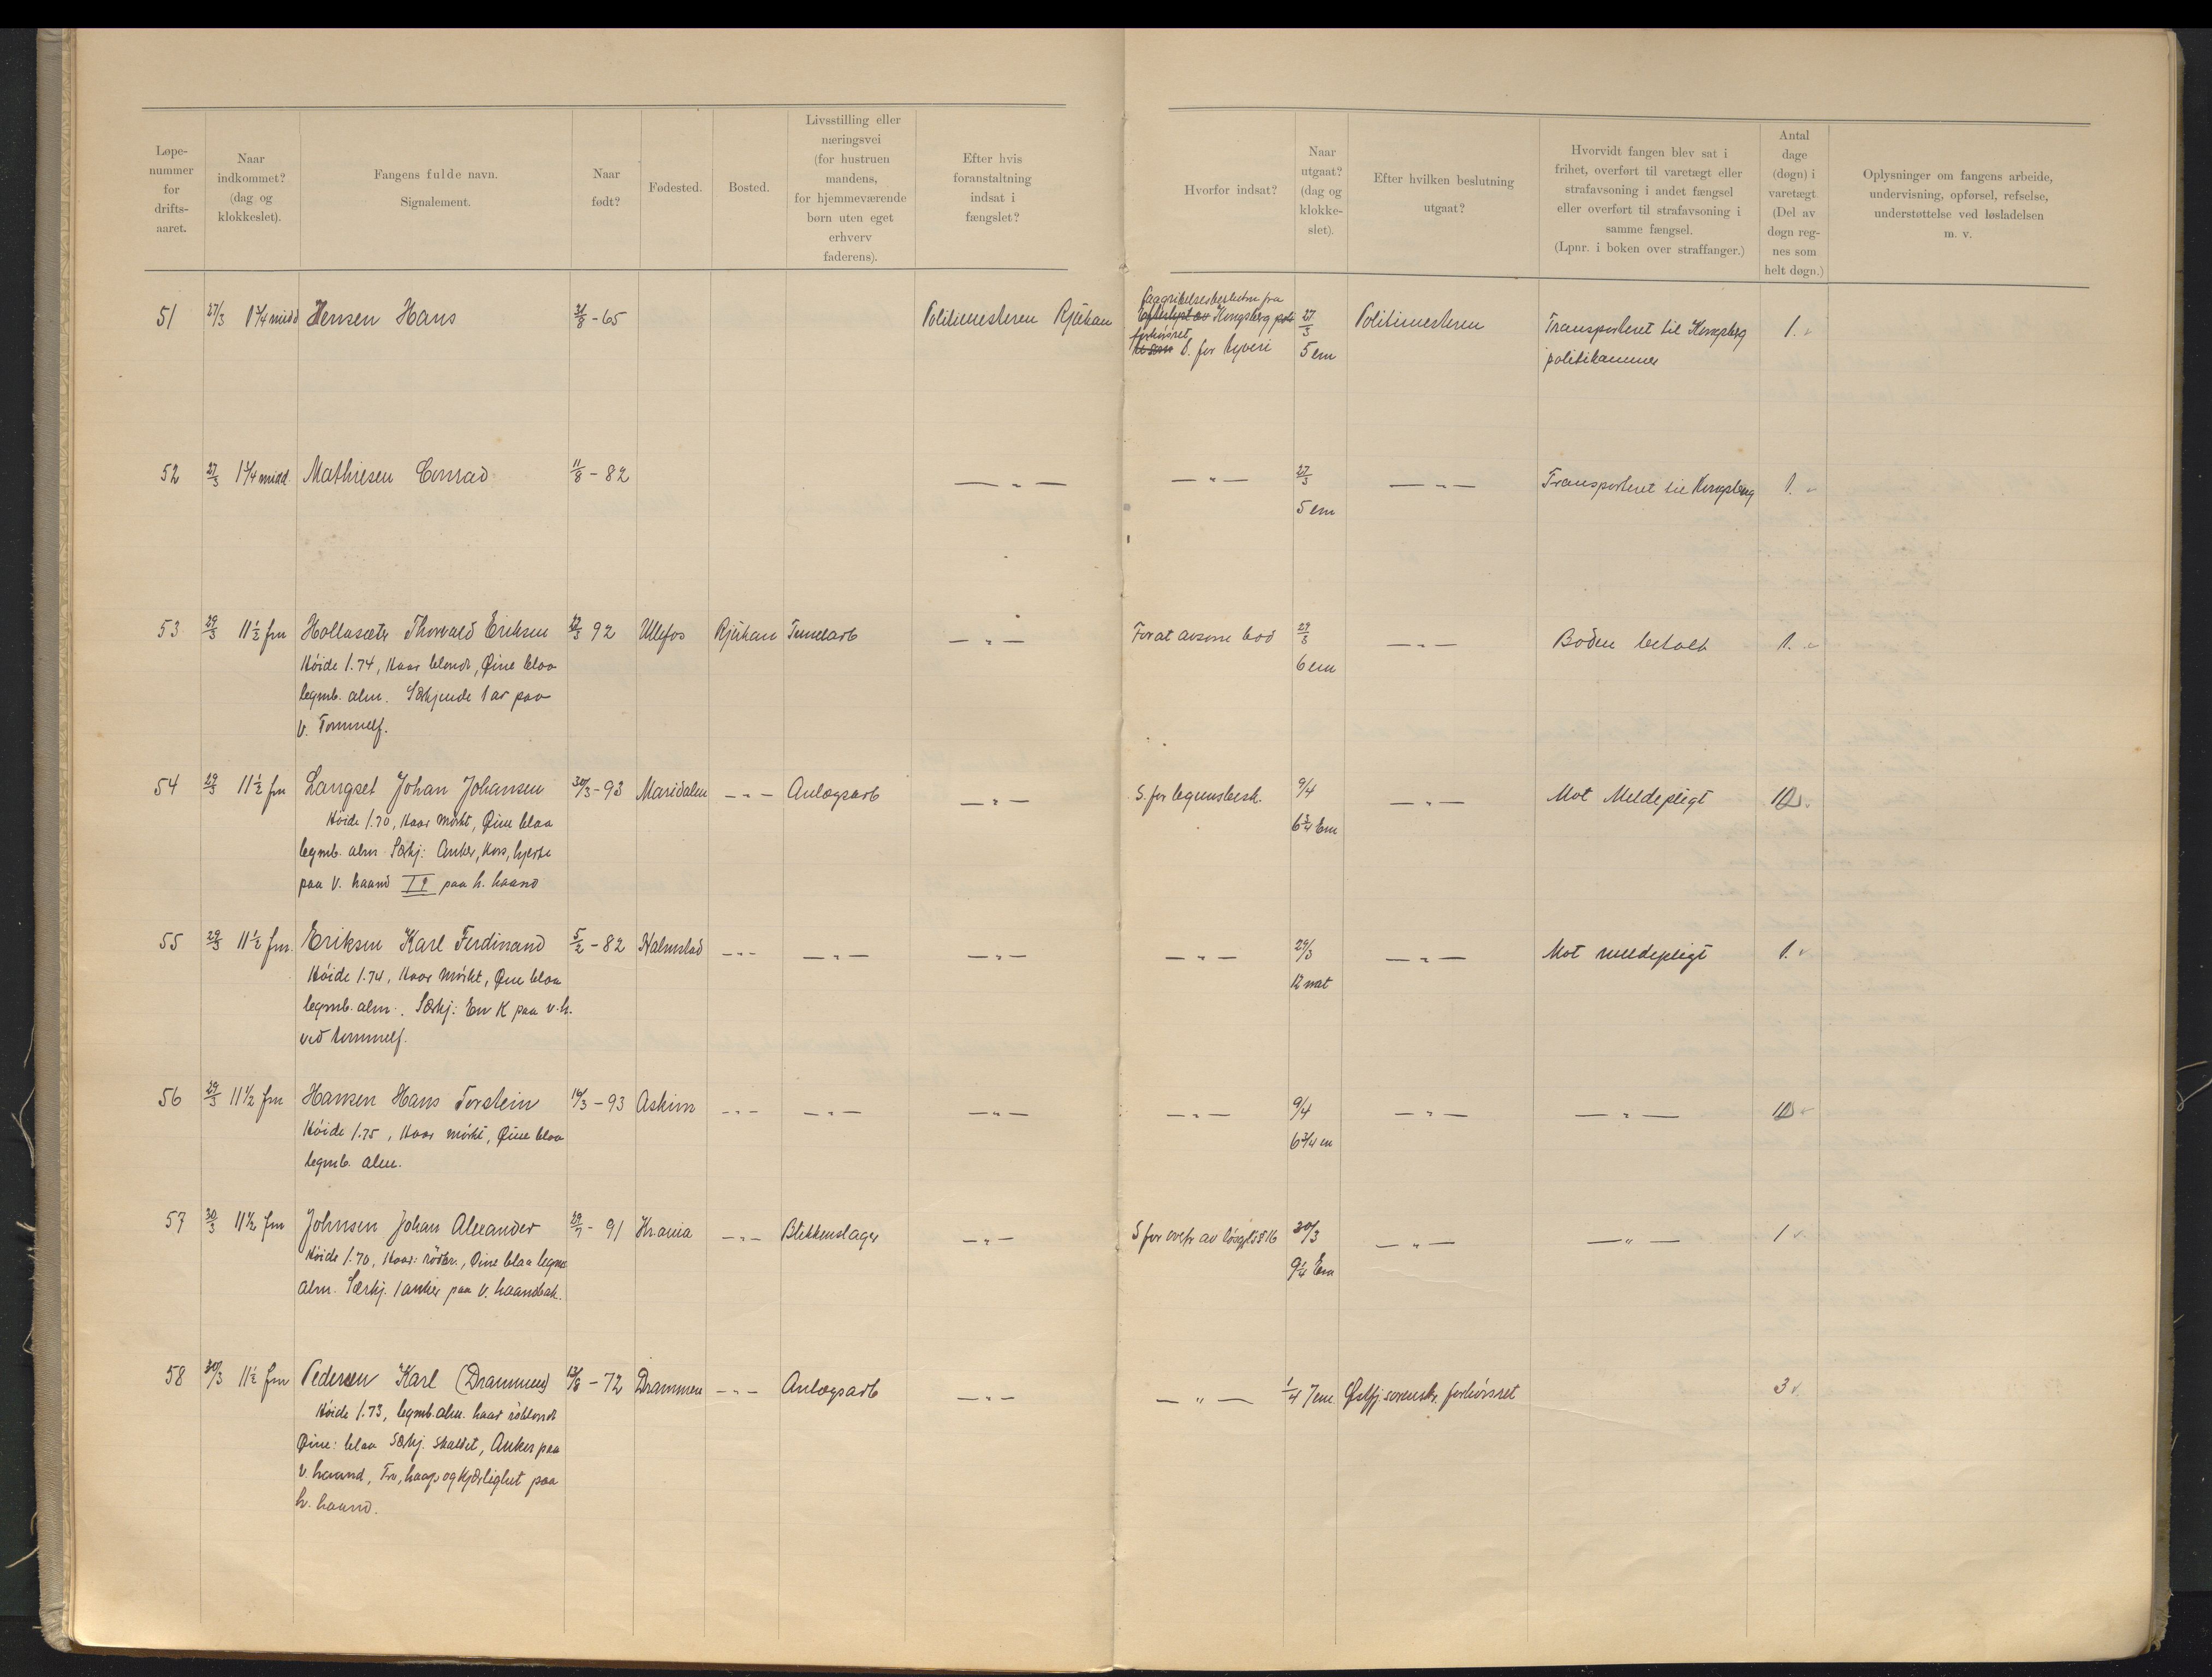 Løpe-
nummer
for
drifts-
aaret.
Naar
indkommet?
(dag og
klokkeslet).
Fangens fulde navn.
Signalement.
Naar
født?
Fødested.
Bosted.
Livsstilling eller
næringsvei
(for hustruen
mandens,
for hjemmeværende
børn uten eget
erhverv
faderens).
Efter hvis
foranstaltning
indsat i
fængslet?
Hvorfor indsat?
Naar
utgaat?
(dag og
klokke-
slet).
Efter hvilken beslutning
utgaat?
Hvorvidt fangen blev sat i
frihet, overført til varetægt eller
strafavsoning i andet fængsel
eller overført til strafavsoning i
samme fængsel.
(Lpnr. i boken over straffanger.)
Antal
dage
(døgn) i
varetægt
(Del av
døgn reg-
nes som
helt døgn.)
Oplysninger om fangens arbeide,
undervisning, opførsel, refselse,
understøttelse ved løsladelsen
m. v.
51 27/3 1 3/4 midd Hensen Hans 31/8 - 65 Politimesteren Rjukan
Paagripelsesbeslutn fra
Efterlyst av Kongsberg poli
forhörsret
S. for tyveri
27/3
5 em
Politimesteren
Transporteret til Kongsberg
politikammer
1.
52 27/3 1 3/4 midd. Mathiesen Conrad 11/8 - 82 — " — — " — 27/3
5 em
— " — Transporteret til Kongsberg 1.
53 29/3 11 1/2 fm Hollasæter Thorvald Eriksen 92 Ullefos Rjukan Tunelarb — " — For at avsone bod 29/3
6 em
— " — Boden betalt 1.
Höide 1.74, Haar blondt, Øine blaa
legmb. alm. Særkjende 1 ar paa
v. Tommelf.
54 29/3 11 1/2 fm Langset Johan Johansen 30/3 - 93 Maridalen — " — Anlægsarb — " — S. for legemsbesk. 9/4
6 3/4 Em
— " — Mot Meldepligt
Höide 1.70, Haar mörkt, Øine blaa
legmb. alm Særkj: Anker, Kors, hjerte
paa v. haand paa h. haand
55 29/3 11 1/2 fm. Eriksen Karl Ferdinand 5/2 - 82 Halmstad — " — — " — — " — — " — 29/3
12 nat
— " — Mot meldepligt 1.
Höide 1.74, Haar mörkt, Øine blaa
legmb. alm. Særkj: En K paa v. h.
ved tommelf.
56 29/3 11 1/2 fm Hansen Hans Torstein 14/3 - 93 Askim — " — — " — — " — — " — 9/4
6 3/4 em
— " — — " —
Höide 1.75, Haar mörkt, Øine blaa
legmb. alm.
57 30/3 11 1/2 fm Johnsen Johan Alexander 29/7 - 91 Krania — " — Blikkenslager — " — S for overtr av lösgl § 16 30/3
9 1/4 Em
— " — — " — 1
Höide 1.70, Haar: rödbr., Øine blaa legmb
alm. Særkj. 1 anker paa v. haandbak.
58 30/3 11 1/2 fm Pedersen Karl (Drammen) 13/8 - 72 Drammen — " — Anlægsarb — " — — " — 1/4 7 em Østfj. sorenskr. forhörsret 3
Höide 1.73, legmb. alm. haar rödblondt
Øine: blaa Særkj. skaldet, Anker paa
v. haand, Tro, haap og Kjærlighet paa
h. haand.